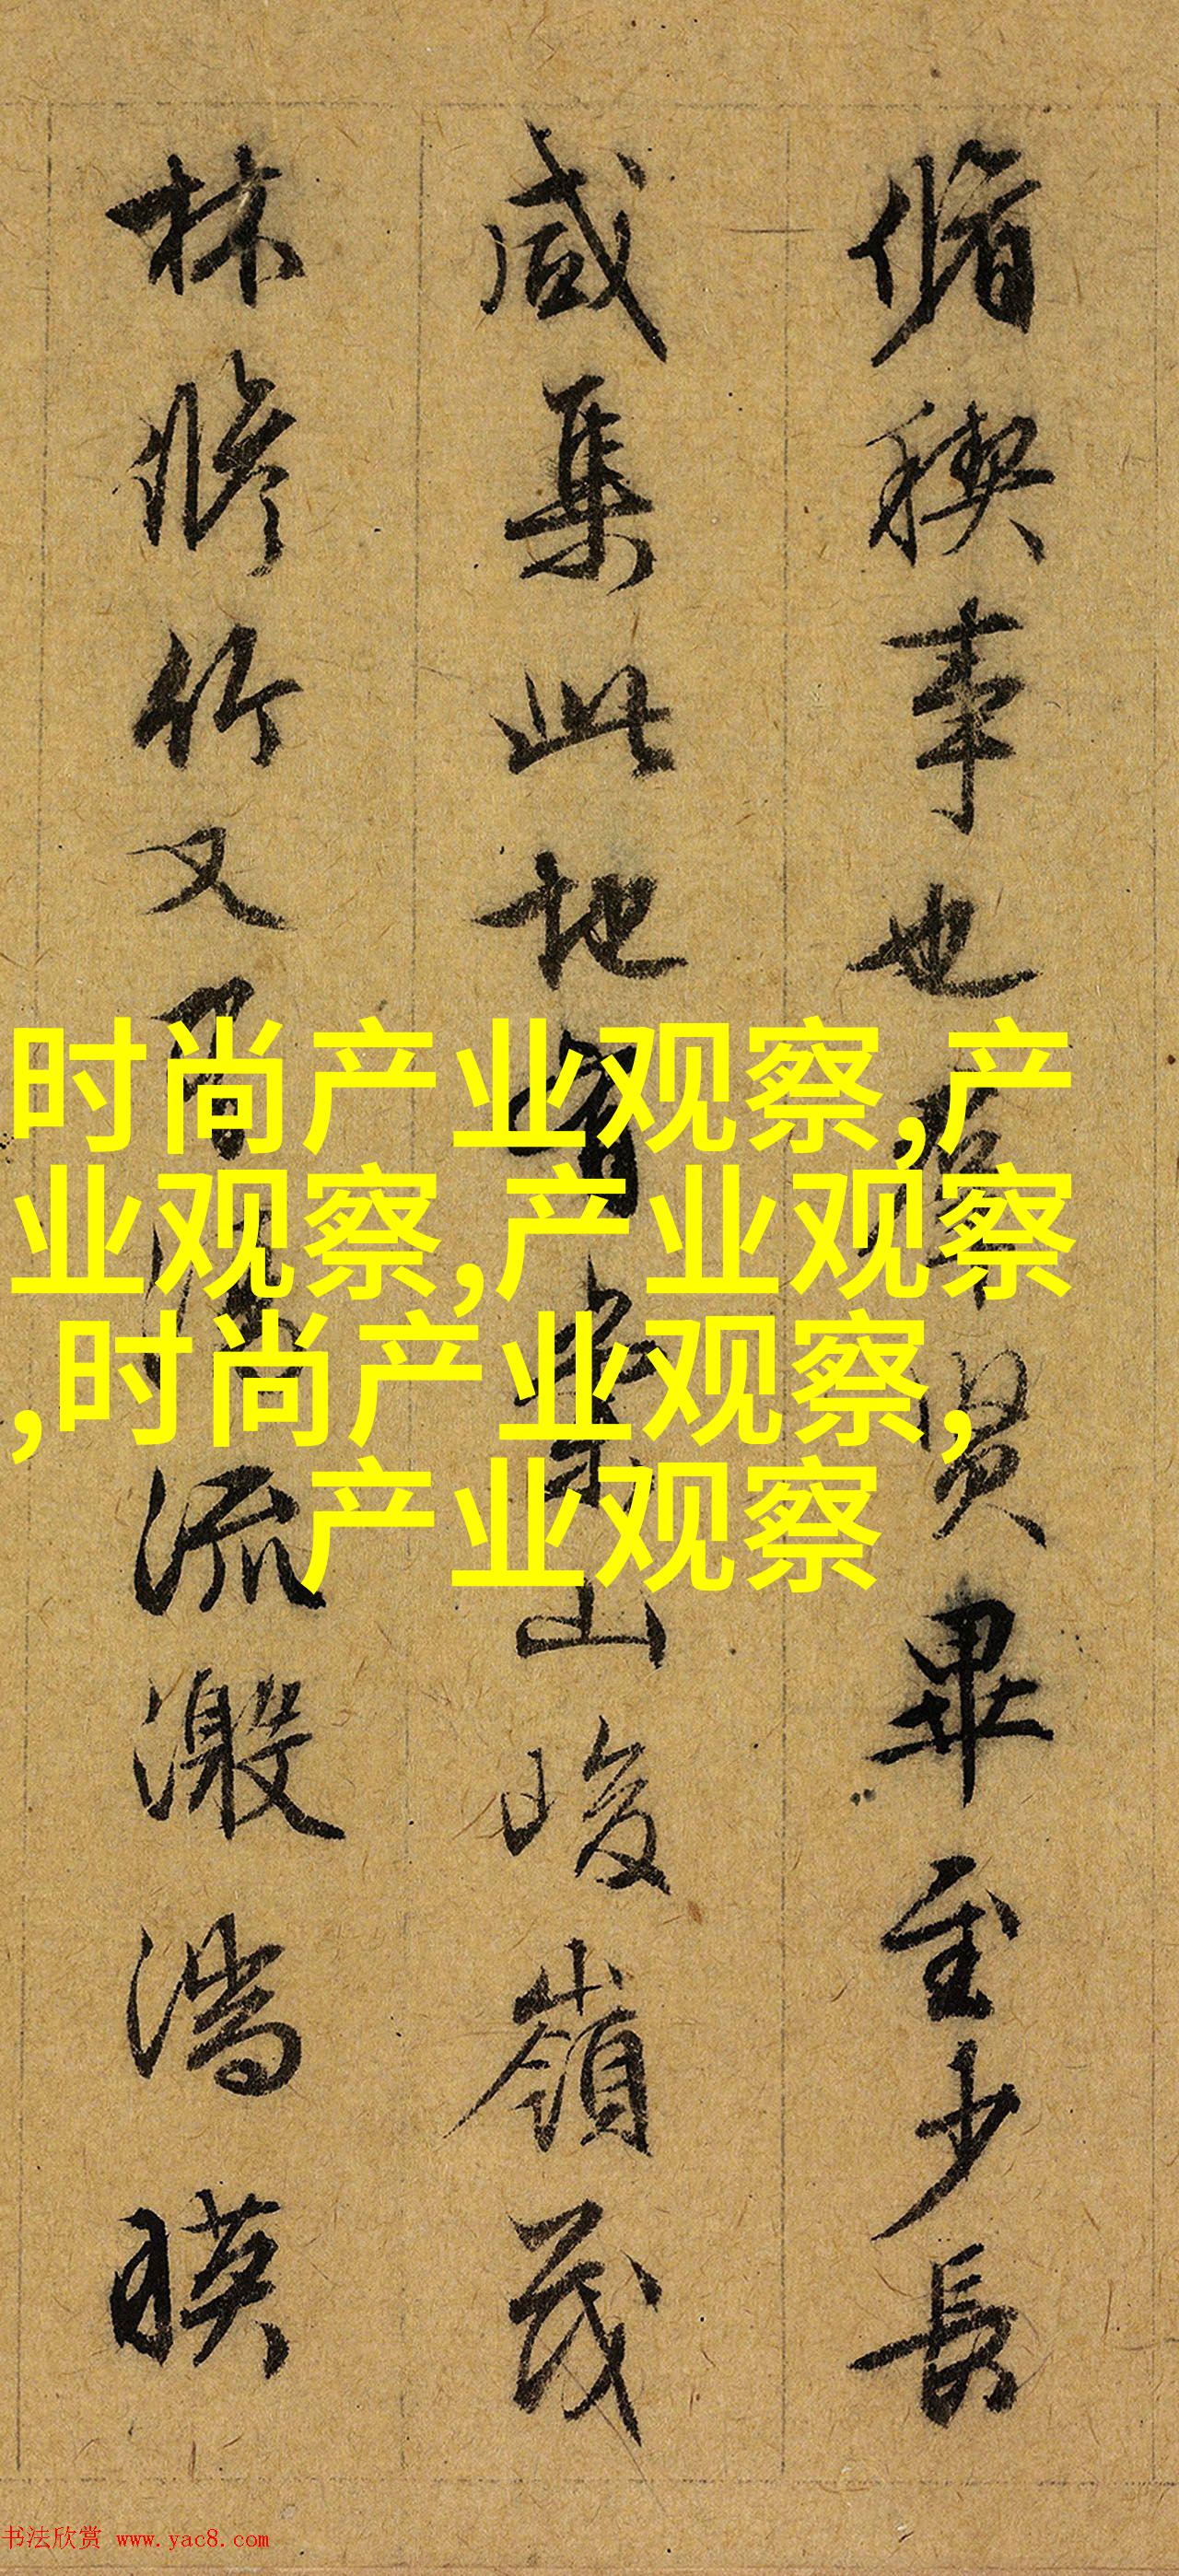 脩稧事也羣賢畢至少長
咸集此地有崇山峻領茂
林脩竹又有清流激湍暎
时尚产业观察,产
业观察,产业观察
,时尚产业观察,
产业观察
书法欣赏 www.yac8.com